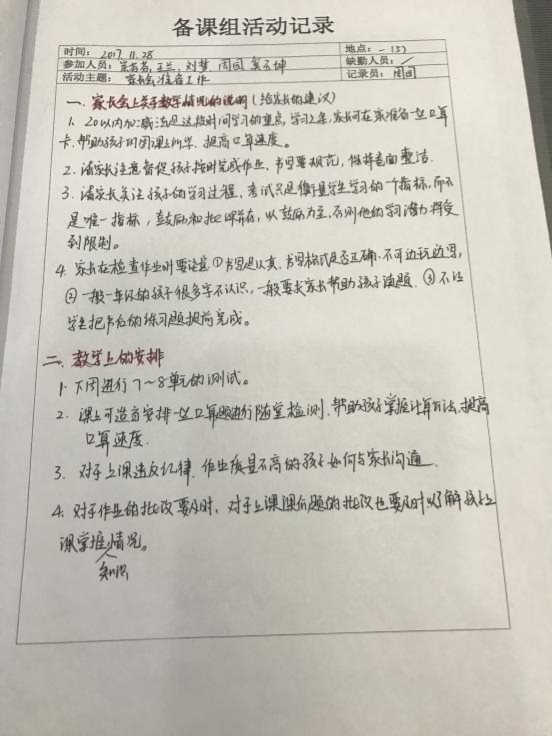 备课组活动记录
时间： 2017.11.28 地点：一(3)
参加人员： 王兰、刘梦 周园 缺勤人员：/
活动主题： 家长会准备工作 记录员：周园
一、家长会上关于数学情况的说明(给家长的建议)
1. 20以内加减法是这段时间学习的重点，学习之余，家长可在家准备一些口算
卡，帮助孩子巩固课上所学，提高口算速度。
2. 请家长注意督促孩子按时完成作业，书写要规范，保持书面整洁.
3. 请家长关注孩子的学习过程，考试只是衡量学生学习的一个指标，而不
是唯一指标，鼓励和批评并存，以鼓励为主，否则他的学习潜力将受
到限制。
4. 家长在检查作业时要注意①书写是认真，书写格式是否正确，不可边玩边写，
②一般一年级的孩子很多字不认识，一般要求家长帮助孩子读题.③不让
学生把书后的练习题提前完成。
二、教学上的安排
1. 下周进行7～8单元的测试。
2. 课上可适当安排一些口算题进行随堂检测，帮助孩子掌握计算方法，提高
口算速度.
3. 对于上课违反纪律，作业质量不高的孩子如何与家长沟通.
4. 对于作业的批改要及时，对于上课课后题的批改也要及时以了解孩子上
课掌握情况。
知识